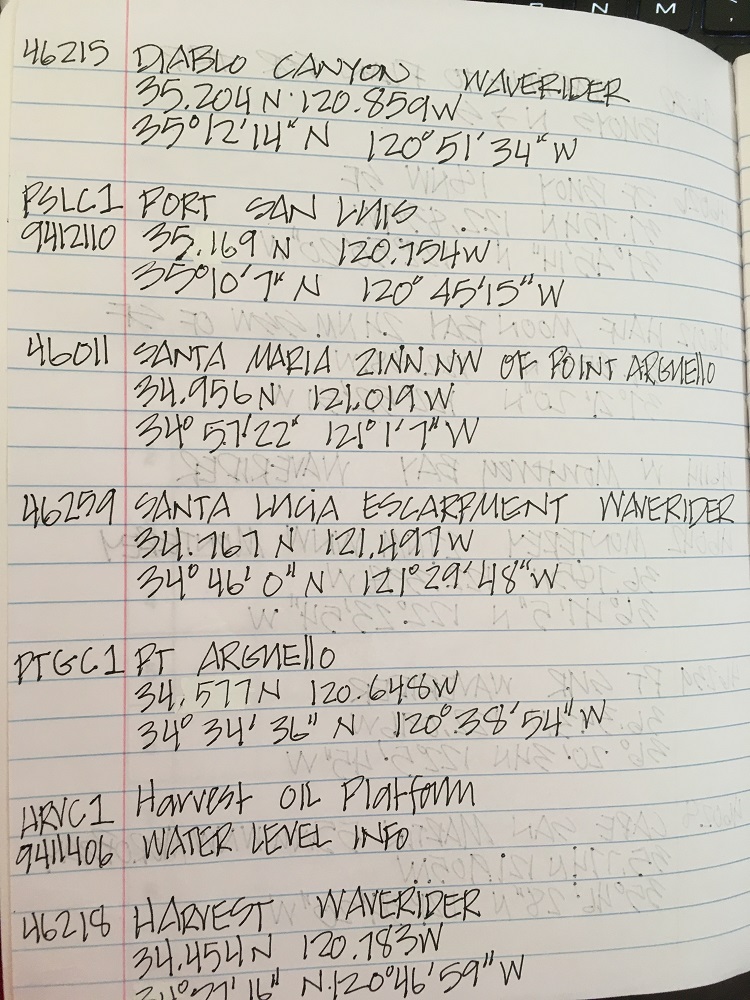 N M
46215 DIABLO CANYON WAVERIDER
35.204 N 120.859W
35°12'14" N 120°51'34" W
PSLC1 PORT SAN LUIS
9412110 35.169 N 120.754W
35°10'7" N 120°45'15" W
46011 SANTA MARIA 21NN.NW OF POINT ARGUEllO
34.956 N 121.019 W
34°57'22" 121°1'7" W
46259 SANTA LUCIA ESCARPMENT WAVERIDER
34.767 N 121.497W
34°46'0" N 121°29'48" W
PTGC1 PT ARGUEllO
34.577N 120.648W
34°34'36" N 120°38'54" W
HRVC1 Harvest OIL Platform
9411406 WATER LEVEL INFO
46218 HARVEST WAVERIDER
34.454N 120.783W
34°27'16" N 120°46'59" W